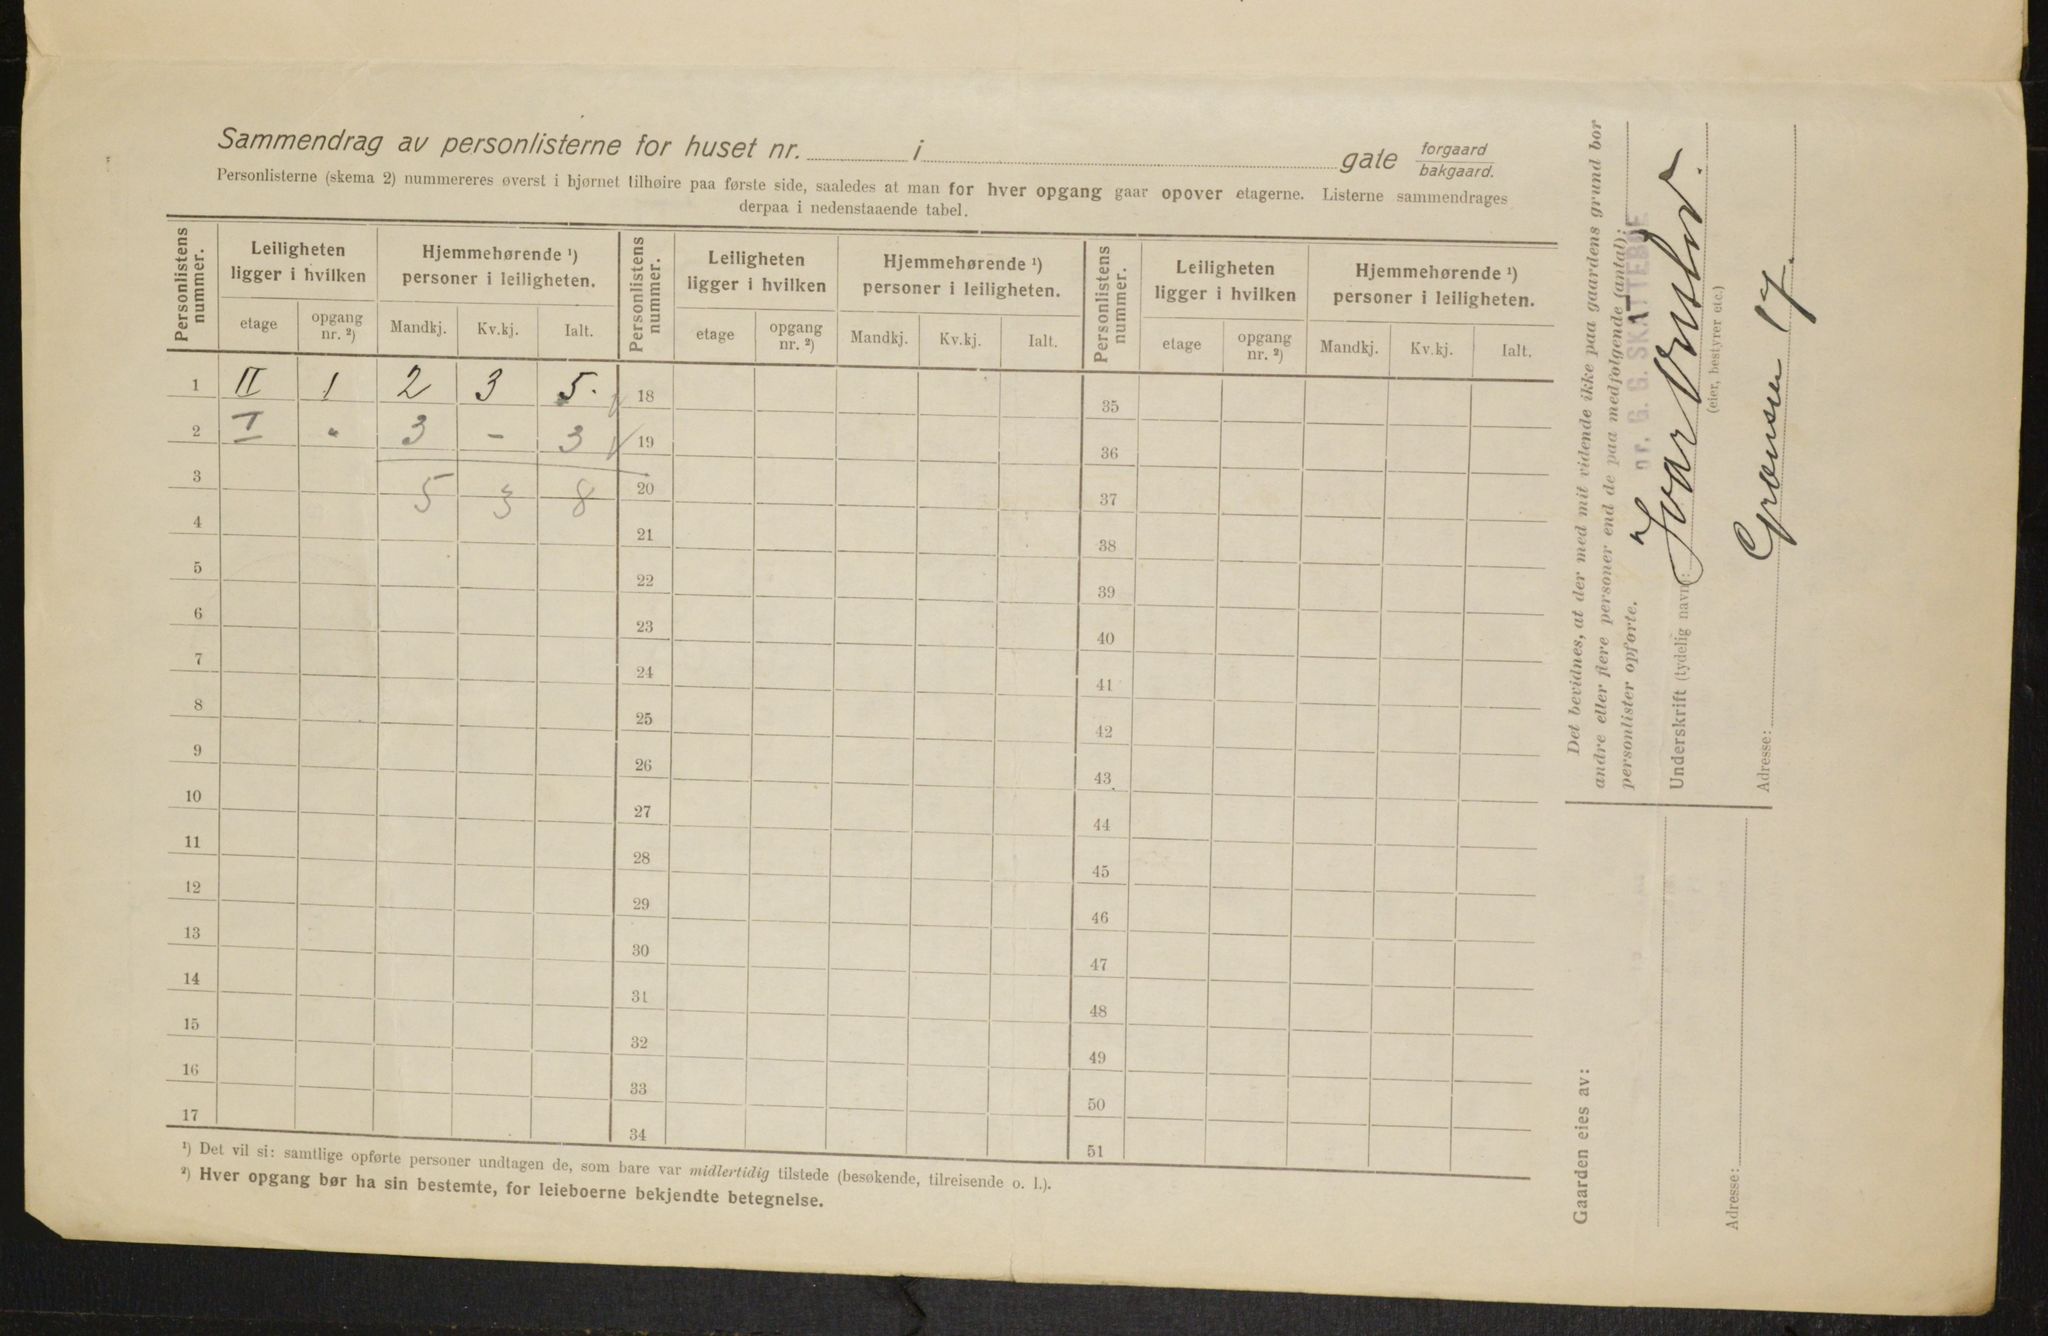 Sammendrag av personlisterne for huset nr. i gate forgaard bakgaard.
Personlisterne (skema 2) nummereres øverst i hjørnet tilhøire paa første side, saaledes at man for hver opgang gaar opover etagerne. Listerne sammendrages
derpaa i nedenstaaende tabel.
Personlistens nummer. Leiligheten ligger i hvilken Hjemmehørende ¹) personer i leiligheten. Personlistens nummer. Leiligheten ligger i hvilken Hjemmehørende ¹) personer i leiligheten. Personlistens nummer. Leiligheten ligger i hvilken Hjemmehørende ¹) personer i leiligheten.
etage opgang nr. ²) Mandkj. Kv.kj. Ialt. etage opgang nr. ²) Mandkj. Kv.kj. Ialt. etage opgang nr. ²) Mandkj. Kv.kj. Ialt.
1 II 1 2 3 5. 18 35
2 I " 3 - 3 19 36
3 5 3 8 20 37
4 21 38
5 22 39
6 23 40
7 24 41
8 25 42
9 26 43
10 27 44
11 28 45
12 29 46
13 30 47
14 31 48
15 32 49
16 33 50
17 34 51
¹) Det vil si: samtlige opførte personer undtagen de, som bare var midlertidig tilstede (besøkende, tilreisende o. l.).
²) Hver opgang bør ha sin bestemte, for leieboerne bekjendte betegnelse.
Det bevidnes, at der med mit vidende ikke paa gaardens grund bor
andre eller flere personer end de paa medfølgende (antal):
personlister opførte.
nr. G. G. SKATTEBØE
Underskrift (tydelig navn): Ivar
(eier, bestyrer etc.)
Adresse: Grønsen 17.
Gaarden eies av:
Adresse: